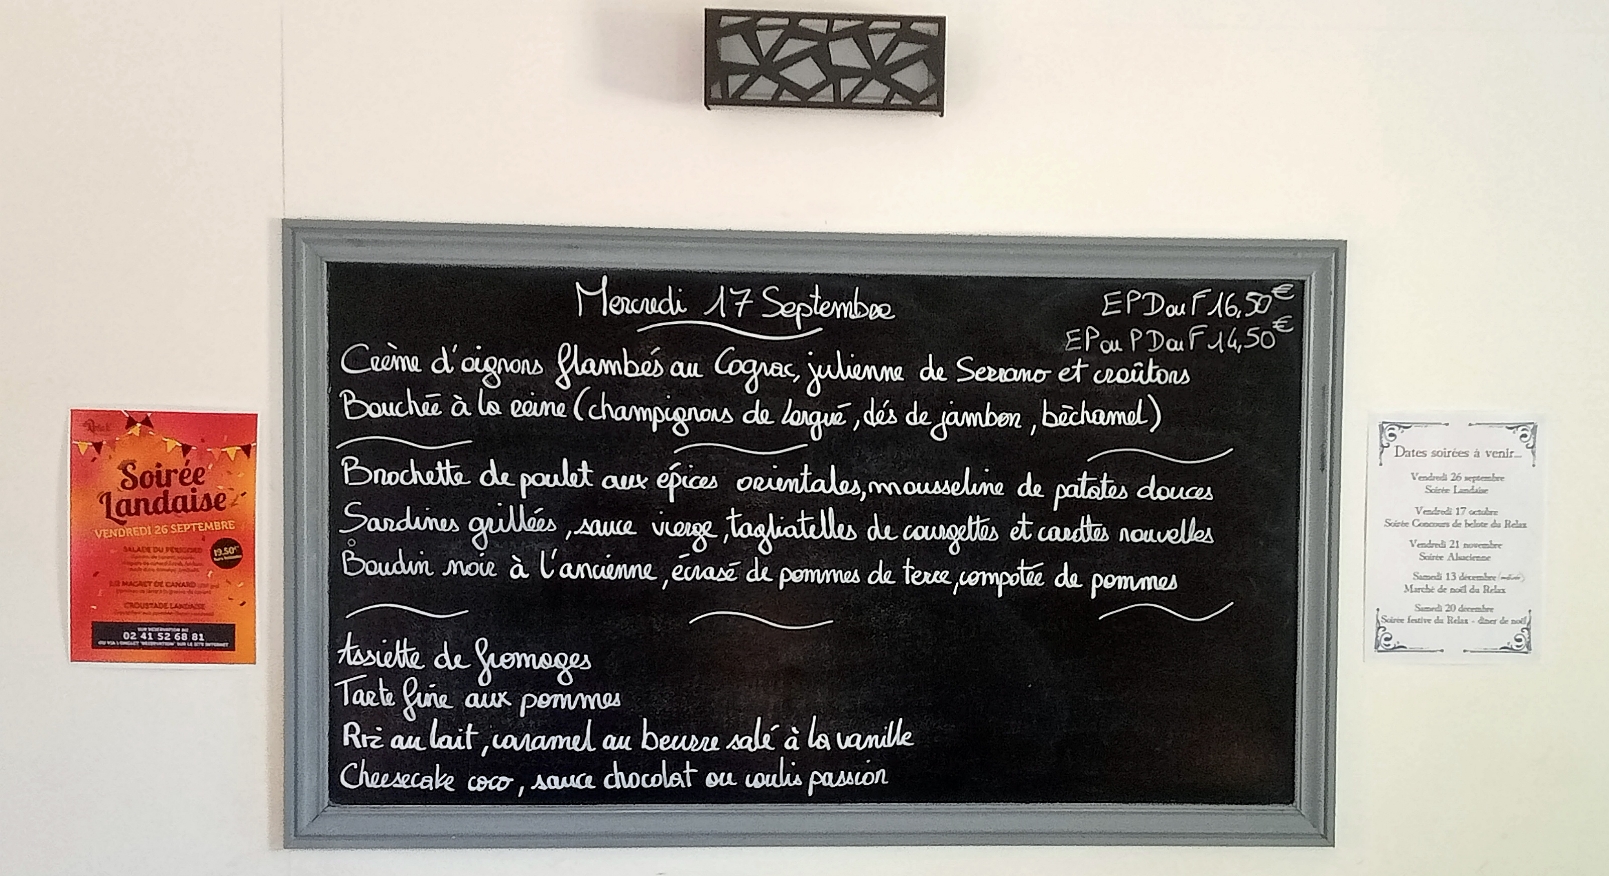 Mercredi 17 Septembre
EPD ou F 16,50€
EP ou PD ou F 14,50€
Crème d'oignons flambés au Cognac, julienne de Serrano et croûtons
Bouchée à la reine (champignons de Longué, dés de jambon, béchamel)
Brochette de poulet aux épices orientales, mousseline de patates douces
Sardines grillées, sauce vierge, tagliatelles de courgettes et carottes nouvelles
Boudin noir à l'ancienne, écrasé de pommes de terre, compotée de pommes
Assiette de fromages
Tarte fine aux pommes
Riz au lait, caramel au beurre salé à la vanille
Cheesecake coco, sauce chocolat ou coulis passion
Soirée
Landaise
VENDREDI 26 SEPTEMBRE
19,50€
SALADE DU PÉRIGORD
MAGRET DE CANARD
CROUSTADE LANDAISE
SUR RÉSERVATION AU
02 41 52 68 81
OU VIA L'ONGLET "RÉSERVATION" SUR LE SITE INTERNET
Dates soirées à venir...
Vendredi 26 septembre
Soirée Landaise
Vendredi 17 octobre
Soirée Concours de belote du Relax
Vendredi 21 novembre
Soirée Alsacienne
Samedi 13 décembre
Marché de noël du Relax
Samedi 20 décembre
Soirée festive du Relax - dîner de noël